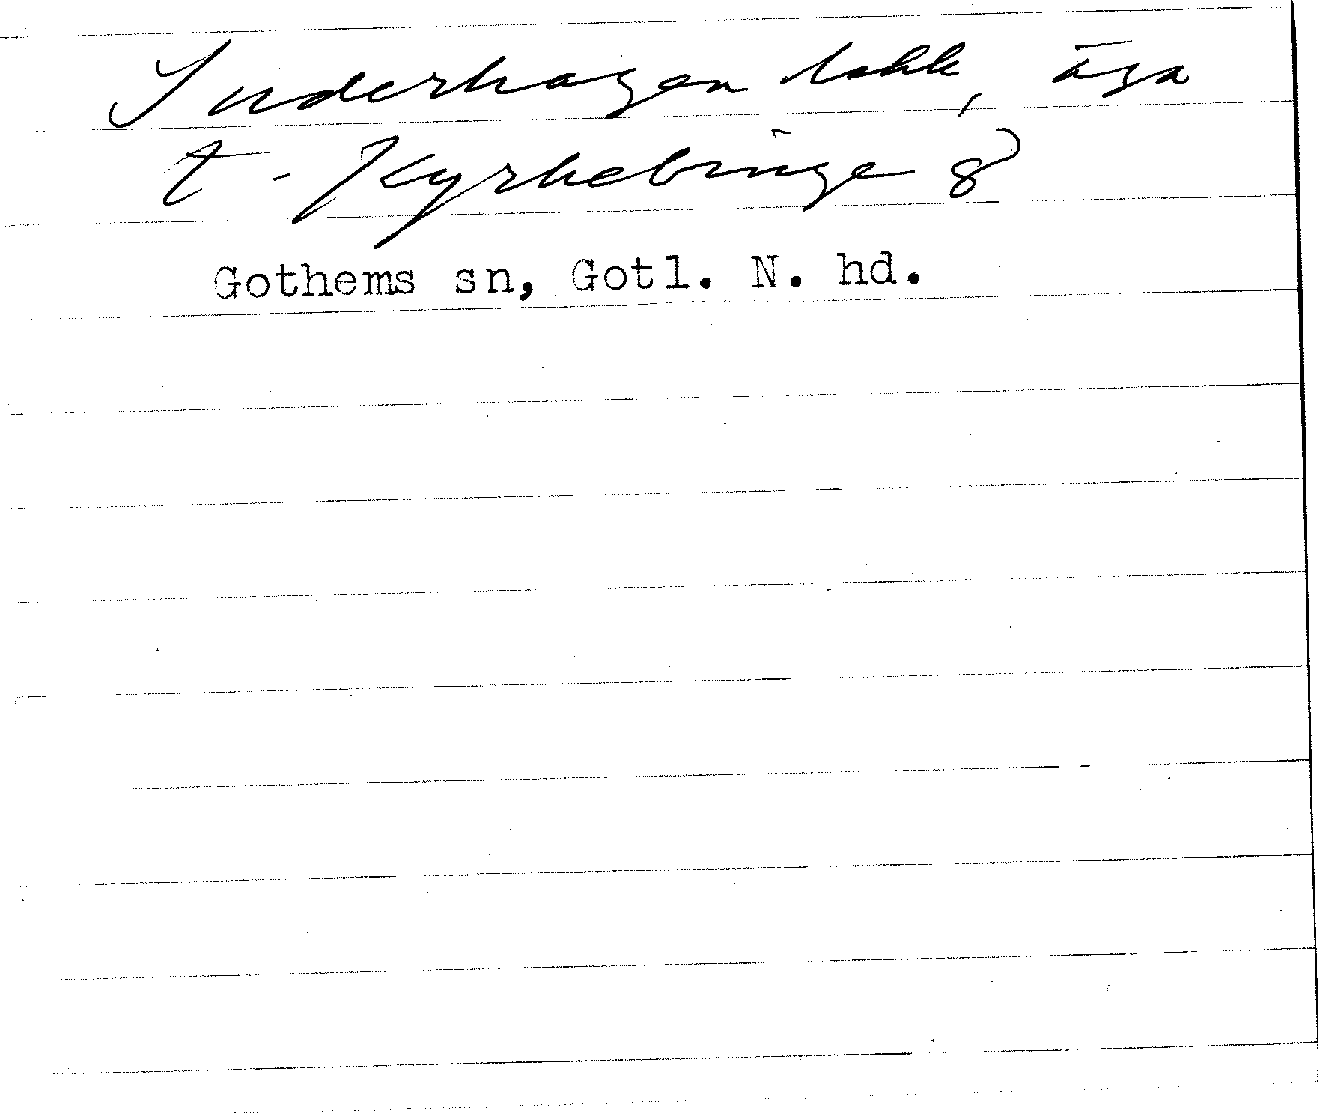 Inderhagen bakk, äga
t. Kyrkebinge 8
Gothems sn, Gotl. N. hd.